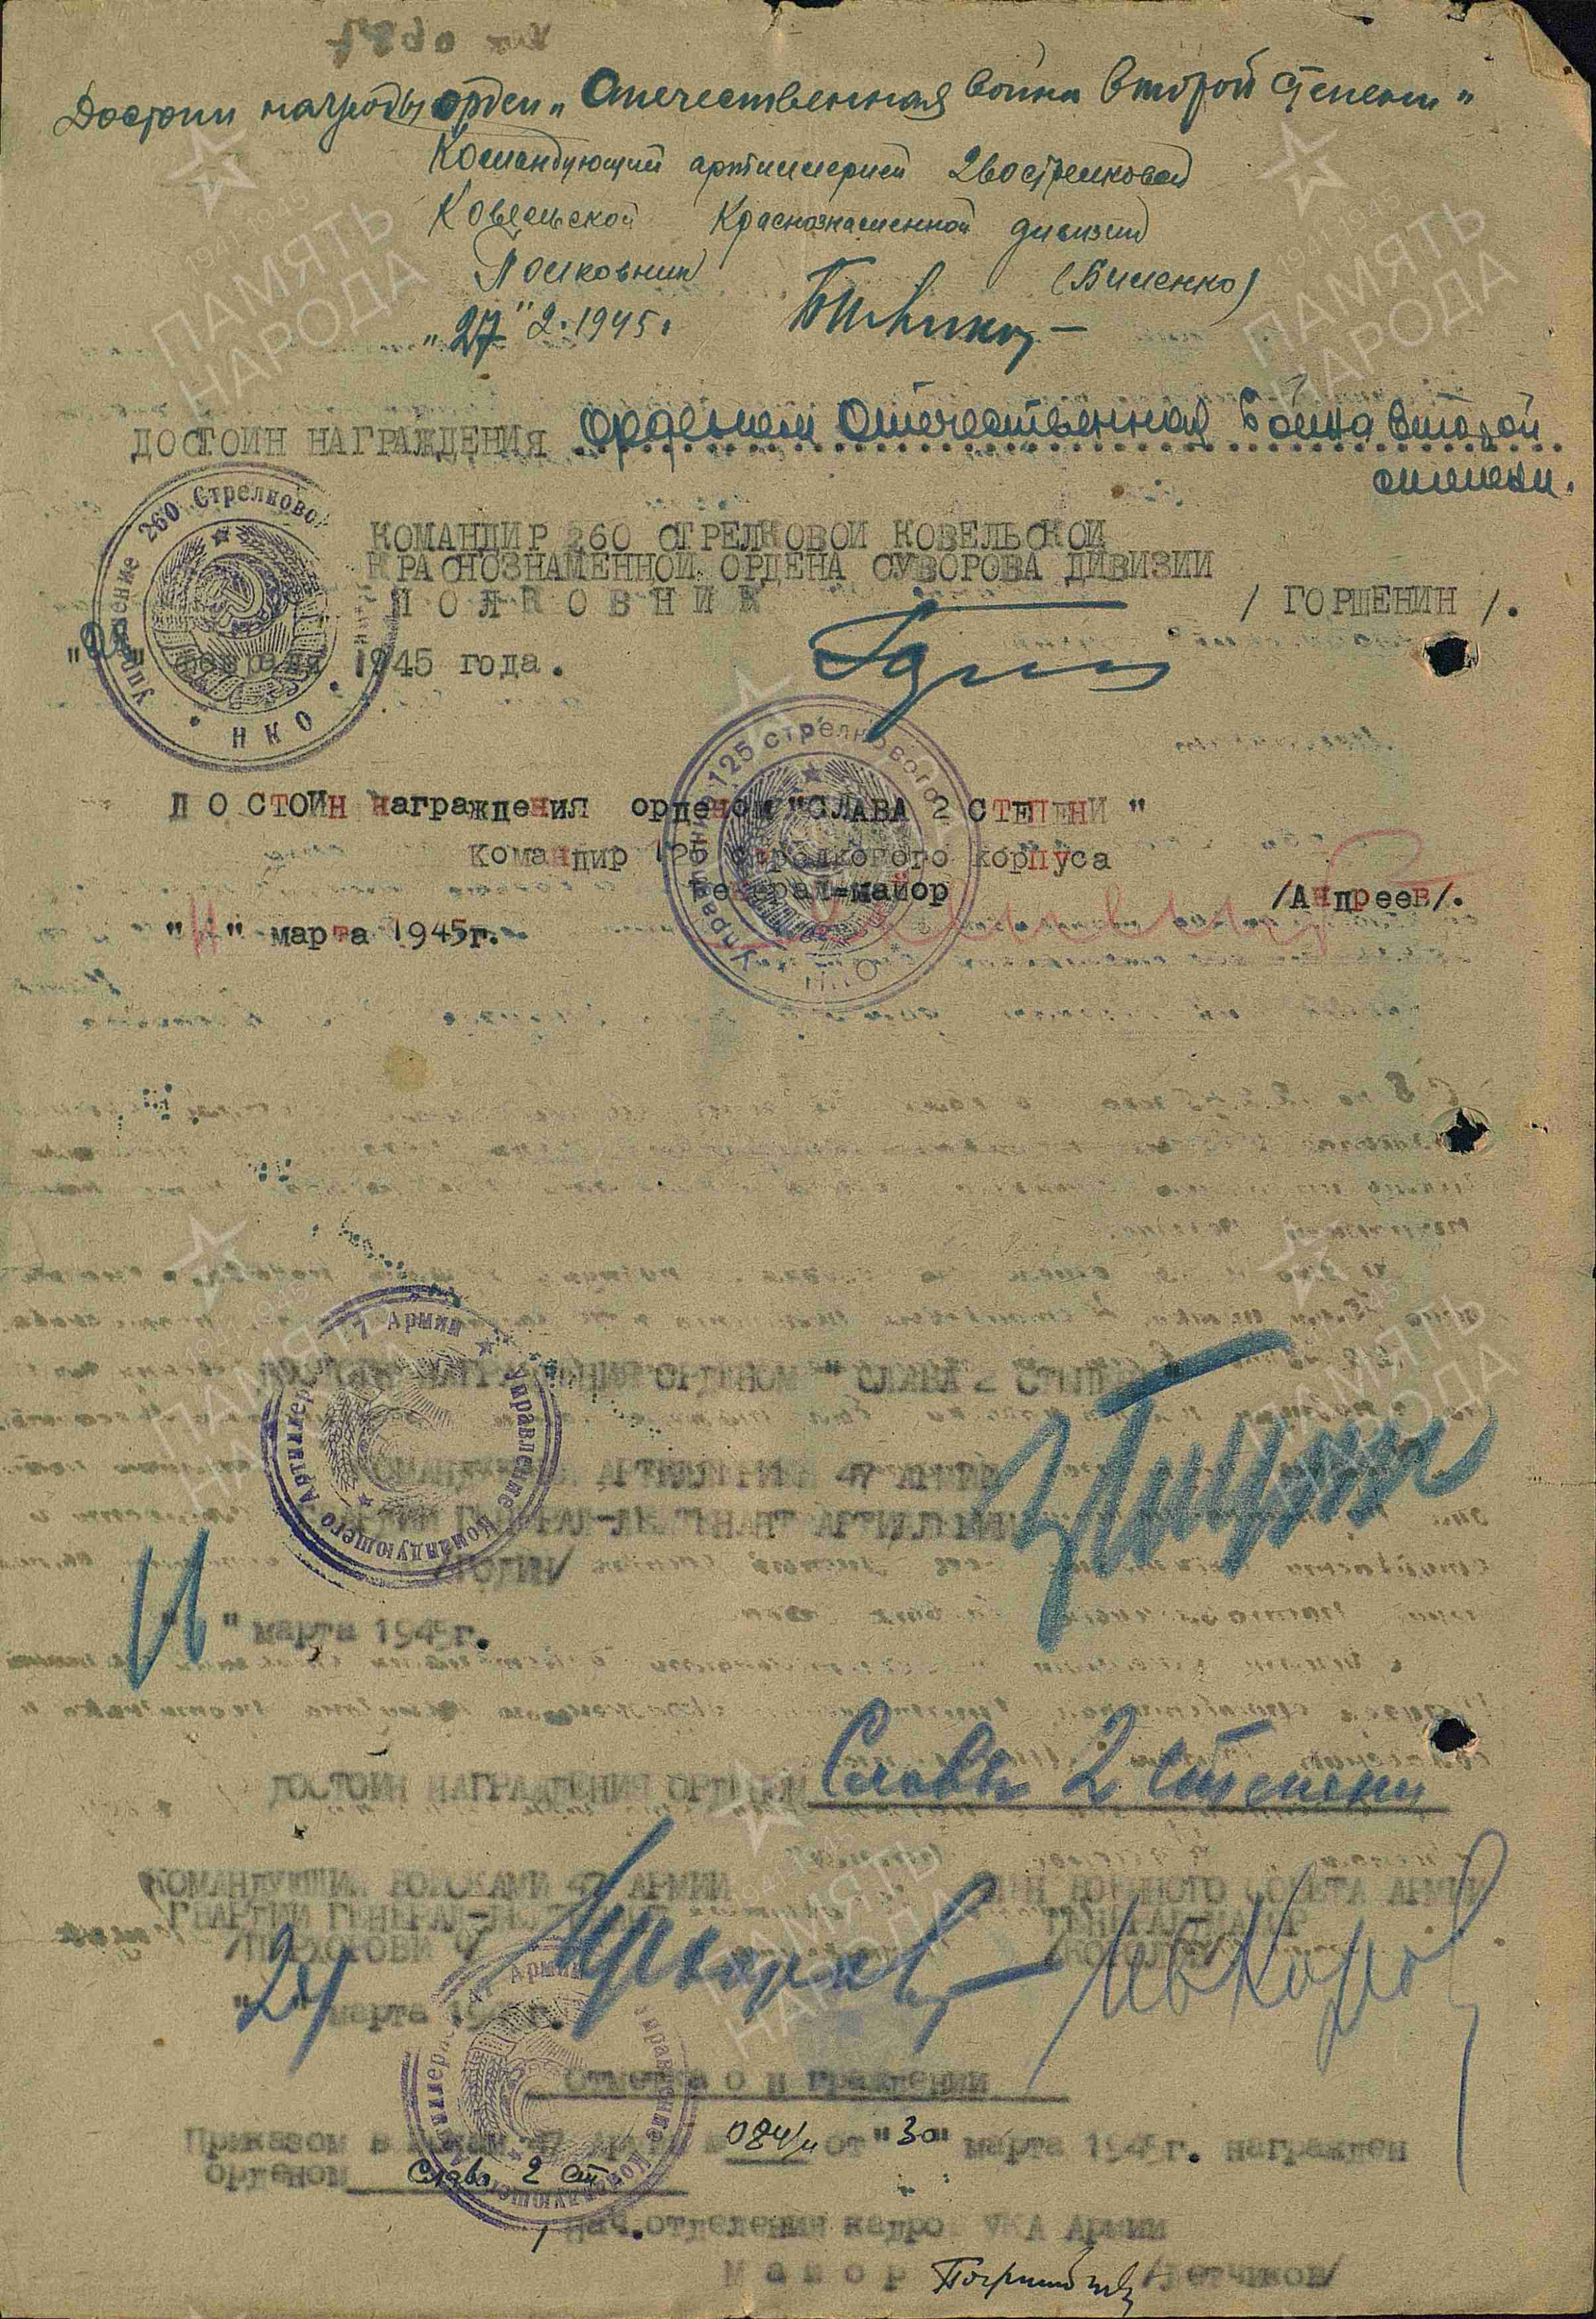 Достоин награды орден „Отечественная война второй степени"
Командующий артиллерией 260 стрелковой
Ковельской Краснознаменной дивизии
Полковник (Биленко)
„27" 2.1945г.
ДОСТОИН НАГРАЖДЕНИЯ орденом Отечественная война второй
степени.
КОМАНДИР 260 СТРЕЛКОВОЙ КОВЕЛЬСКОЙ
КРАСНОЗНАМЕННОЙ ОРДЕНА СУВОРОВА ДИВИЗИИ
ПОЛКОВНИК / ГОРШЕНИН /.
февраля 1945 года.
Управление 260 Стрелковой
ДОСТОИН награждения орденом "СЛАВА 2 СТЕПЕНИ"
Командир 125 стрелкового корпуса
Генерал-майор /Андреев/.
"11" марта 1945г.
Управление 125 стрелкового
ДОСТОИН НАГРАЖДЕНИЯ ОРДЕНОМ "СЛАВА 2 СТЕПЕНИ"
КОМАНДУЮЩИЙ АРТИЛЛЕРИЕЙ 47 АРМИИ
ГВАРДИИ ГЕНЕРАЛ-ЛЕЙТЕНАНТ АРТИЛЛЕРИИ
/ГОДИН/
"16" марта 1945г.
Управление Командующего Артиллерией 47 Армии
ДОСТОИН НАГРАЖДЕНИЯ ОРДЕНОМ Славы 2 степени
КОМАНДУЮЩИЙ ВОЙСКАМИ 47 АРМИИ ЧЛЕН ВОЕННОГО СОВЕТА АРМИИ
ГВАРДИИ ГЕНЕРАЛ-ЛЕЙТЕНАНТ ГЕНЕРАЛ-МАЙОР
/ПЕРХОРОВИЧ/ /КОРОЛЕВ/
"24" марта 1945г.
Управление Командующего Артиллерией 47 Армии
Отметка о награждении
Приказом войскам 47 Армии № 084/н от "30" марта 1945г. награжден
орденом Слава 2 ст
Нач.отделения кадров УКА Армии
Майор /Летчиков/
ПАМЯТЬ НАРОДА
1941 1945